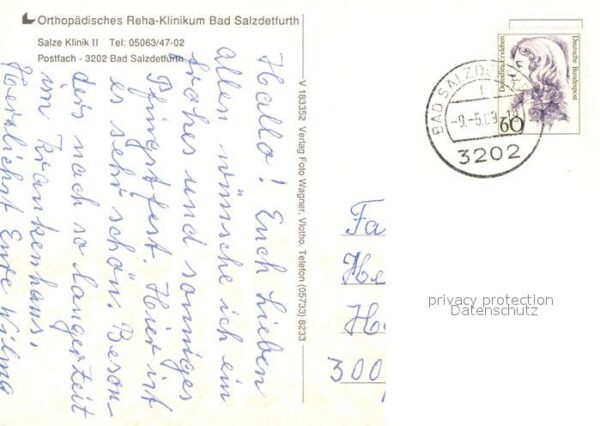 Orthopädisches Reha-Klinikum Bad Salzdetfurth
Salze Klinik II Tel: 05063/47-02
Postfach - 3202 Bad Salzdetfurth
Hallo! Euch Lieben
allen wünsche ich ein
frohes und sonniges
Pfingstfest. Hier ist
es sehr schön. Beson-
ders nach so langerzeit
im Krankenhaus.
Herzlichst Eure Wilma
V 183352 Verlag Foto Wagner, Vlotho. Telefon (05733) 8233
Deutsche Bundespost
60
BAD SALZD
1
3202
Fa
He
H
300
privacy protection
Datenschutz